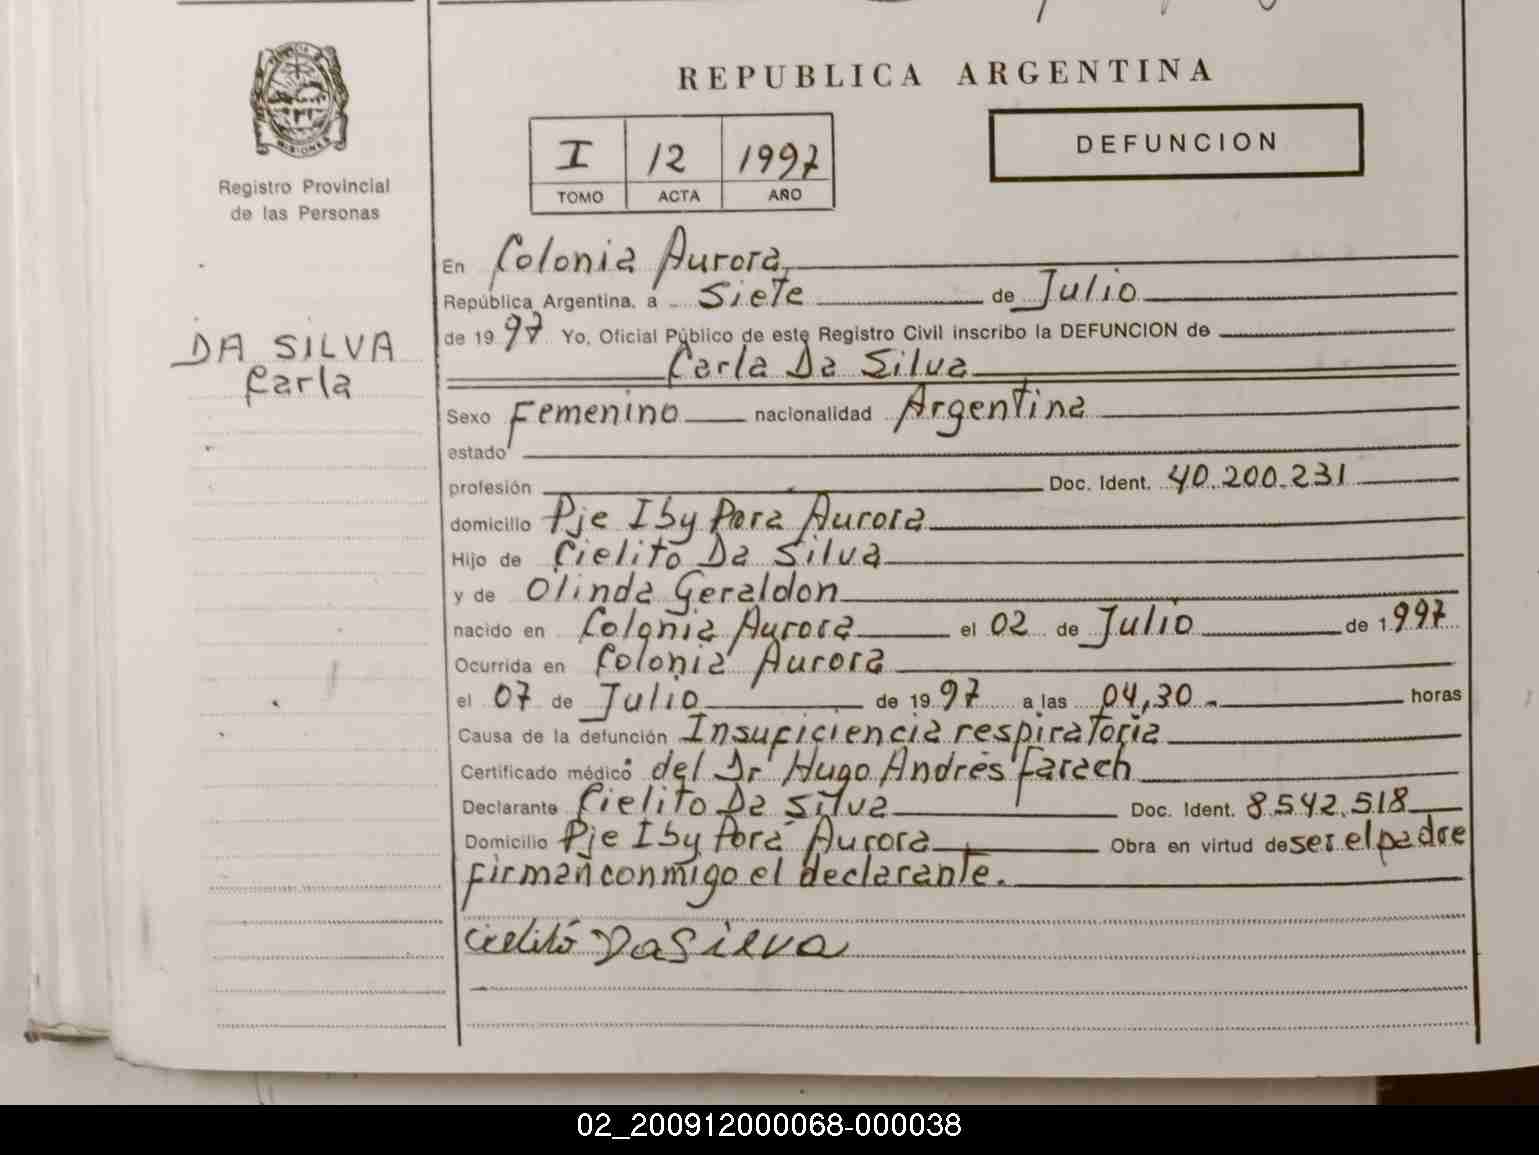 REPUBLICA ARGENTINA
MISIONES
Registro Provincial
de las Personas
I 12 1997
TOMO ACTA AÑO
DEFUNCION
DA SILVA
Carla
En Colonia Aurora
República Argentina, a Siete de Julio
de 1997 Yo, Oficial Público de este Registro Civil inscribo la DEFUNCION de
Carla Da Silva
Sexo Femenino nacionalidad Argentina
estado
profesión Doc. Ident. 40.200.231
domicilio Pje Iby Pora Aurora
Hijo de Cielito Da Silva
y de Olinda Geraldon
nacido en Colonia Aurora el 02 de Julio de 1997
Ocurrida en Colonia Aurora
el 07 de Julio de 1997 a las 04,30.- horas
Causa de la defunción Insuficiencia respiratoria
Certificado médico del Dr Hugo Andrés Farach
Declarante Cielito Da Silva Doc. Ident. 8.542.518
Domicilio Pje Iby Porá Aurora Obra en virtud de ser el padre
firman conmigo el declarante.
Cielitó Da Silva
02_200912000068-000038